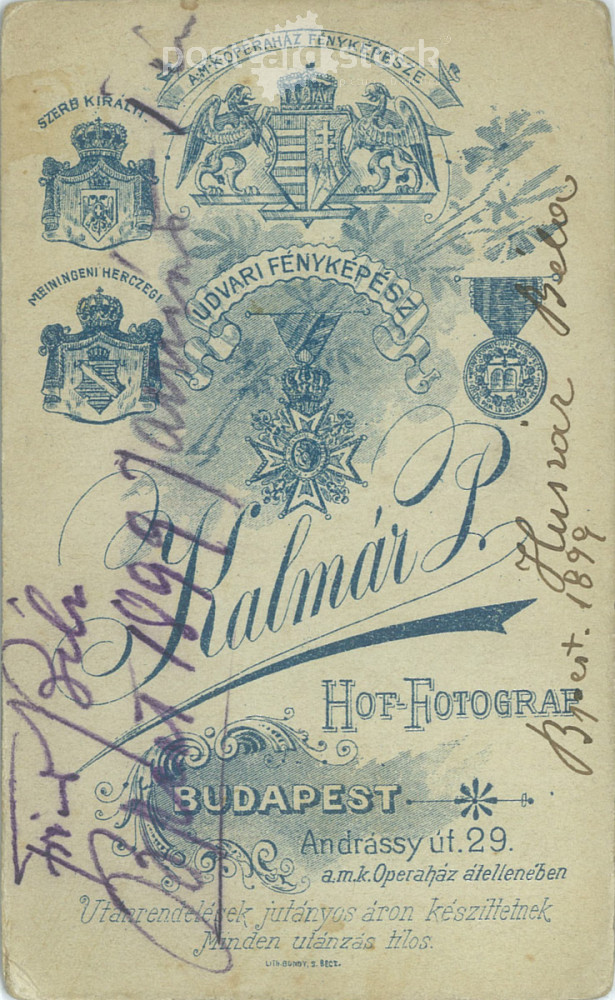 postcard stock
A.M.K.OPERAHÁZ FÉNYKÉPÉSZE
SZERB KIRÁLYI.
MEININGENI HERCZEGI
UDVARI FÉNYKÉPÉSZ
Kalmár P.
HOF-FOTOGRAF
BUDAPEST
Andrássy út. 29.
a.m.k. Operaház átellenében
Utánrendelések jutányos áron készíttetnek
Minden utánzás tilos.
LITH. BONDY, S. BÉCS.
Huszár Béla
Bpest. 1899
Béla
1899